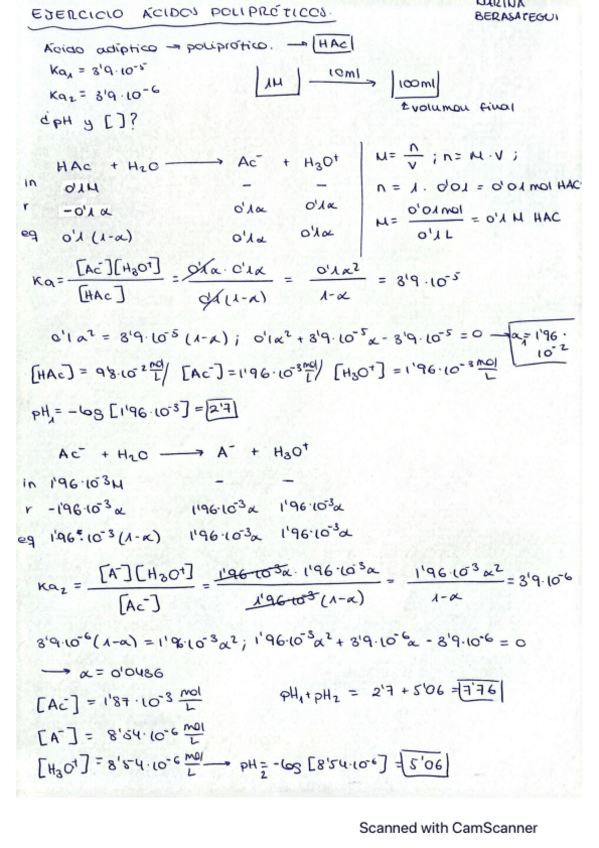 EJERCICIO ÁCIDOS POLIPRÓTICOS.
BERASATEGUI
Ácido adíptico → poliprótico. → HAc
Ka₁ = 3'9·10⁻⁵
Ka₂ = 3'9·10⁻⁶
1M 10ml → 100ml
volumen final
¿pH y [ ]?
HAc + H₂O → Ac⁻ + H₃O⁺
in 0'1M - -
r -0'1α 0'1α 0'1α
eq 0'1(1-α) 0'1α 0'1α
M = n/V ; n = M·V ;
n = 1 · 0'01 = 0'01 mol HAC
M = 0'01 mol / 0'1 L = 0'1 M HAC
Ka = [Ac⁻][H₃O⁺] / [HAc] = 0'1α · 0'1α / 0'1(1-α) = 0'1α² / 1-α = 3'9·10⁻⁵
0'1α² = 3'9·10⁻⁵ (1-α) ; 0'1α² + 3'9·10⁻⁵α - 3'9·10⁻⁵ = 0 → α₁ = 1'96·10⁻²
[HAc] = 9'8·10⁻² mol/L / [Ac⁻] = 1'96·10⁻³ mol/L / [H₃O⁺] = 1'96·10⁻³ mol/L
pH₁ = -log [1'96·10⁻³] = 2'7
Ac⁻ + H₂O → A⁻ + H₃O⁺
in 1'96·10⁻³M - -
r -1'96·10⁻³α 1'96·10⁻³α 1'96·10⁻³α
eq 1'96·10⁻³(1-α) 1'96·10⁻³α 1'96·10⁻³α
Ka₂ = [A⁻][H₃O⁺] / [Ac⁻] = 1'96·10⁻³α · 1'96·10⁻³α / 1'96·10⁻³(1-α) = 1'96·10⁻³α² / 1-α = 3'9·10⁻⁶
3'9·10⁻⁶(1-α) = 1'96·10⁻³α² ; 1'96·10⁻³α² + 3'9·10⁻⁶α - 3'9·10⁻⁶ = 0
→ α = 0'0436
[Ac⁻] = 1'87·10⁻³ mol/L
pH₁ + pH₂ = 2'7 + 5'06 = 7'76
[A⁻] = 8'54·10⁻⁶ mol/L
[H₃O⁺] = 8'54·10⁻⁶ mol/L → pH₂ = -log [8'54·10⁻⁶] = 5'06
Scanned with CamScanner